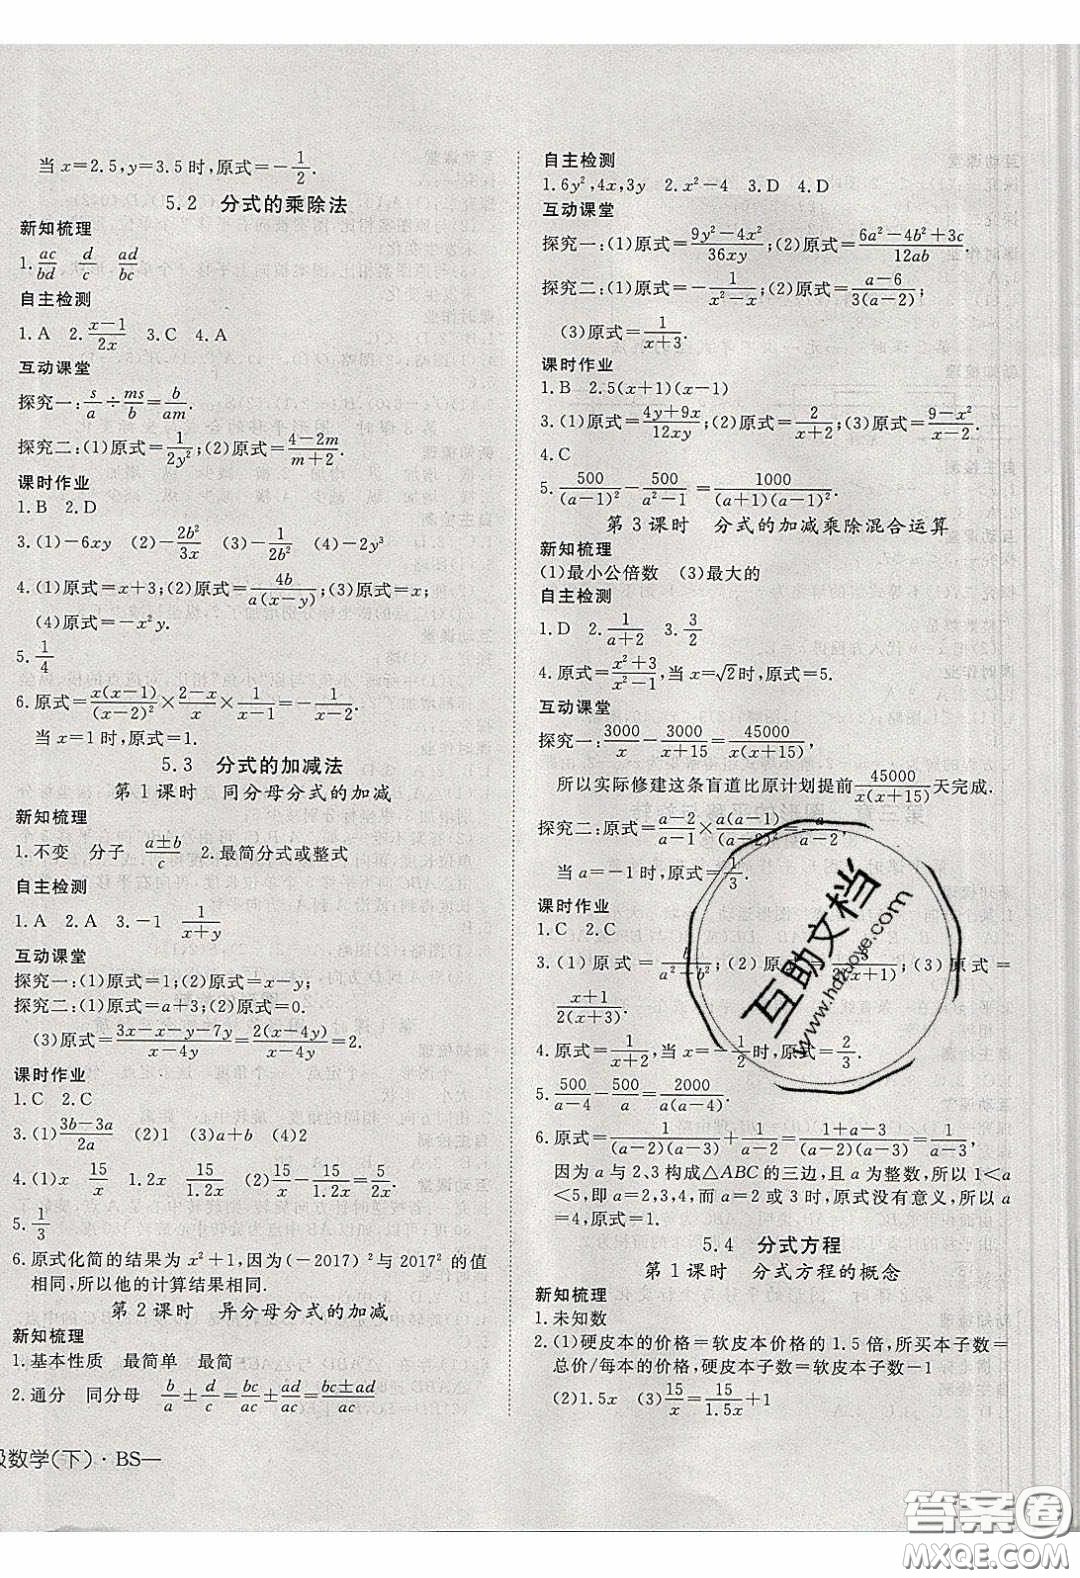 当 x=2.5,y=3.5 时,原式=-1/2.
5.2 分式的乘除法
新知梳理
1. ac/bd d/c ad/bc
自主检测
1.A 2. (x-1)/2x 3.C 4.A
互动课堂
探究一: s/a ÷ ms/b = b/am.
探究二:(1)原式=1/2y²;(2)原式=(4-2m)/(m+2).
课时作业
1.B 2.D
3.(1)-6xy (2)-2b²/3x (3)-1/2b² (4)-2y³
4.(1)原式=x+3;(2)原式=4b/a(x-y);(3)原式=
(4)原式=-x²y.
5. 1/4
6.原式=x(x-1)/(x-2)² × (2-x)/x × 1/(x-1) = -1/(x-2).
当 x=1 时,原式=1.
5.3 分式的加减法
第 1 课时 同分母分式的加减
新知梳理
1.不变 分子 (a±b)/c 2.最简分式或整式
自主检测
1.A 2.A 3.-1 1/(x+y)
互动课堂
探究一:(1)原式=1;(2)原式=x-y;
探究二:(1)原式=a+3;(2)原式=0.
(3)原式=(3x-x-y-7y)/(x-4y)=2(x-4y)/(x-4y)=2.
课时作业
1.C 2.C
3.(1)(3b-3a)/2a (2)1 (3)a+b (4)2
4.(1)x 15/x 1.2x 15/1.2x (2)15/x - 15/1.2x = 5/2x
5. 1/3
6.原式化简的结果为 x²+1,因为(-2017)²与 2017² 的值
相同,所以他的计算结果相同.
第 2 课时 异分母分式的加减
新知梳理
1.基本性质 最简单 最简
2.通分 同分母 b/a ± d/c = bc/ac ± ad/ac = (bc±ad)/ac
级数学(下)·BS—
自主检测
1.6y²,4x,3y 2.x²-4 3.D 4.D
互动课堂
探究一:(1)原式=(9y²-4x²)/36xy;(2)原式=(6a²-4b²+3c)/12ab.
探究二:(1)原式=-1/(x²-x);(2)原式=(a-6)/3(a-2);
(3)原式=1/(x+3).
课时作业
1.B 2.5(x+1)(x-1)
3.(1)原式=(4y+9x)/12xy;(2)原式=2/(x+2);(3)原式=(9-x²)/(x-2).
4.C
5. 500/(a-1)² - 500/(a²-1) = 1000/(a+1)(a-1)².
第 3 课时 分式的加减乘除混合运算
新知梳理
(1)最小公倍数 (3)最大的
自主检测
1.D 2. 1/(a+2) 3. 3/2
4.原式=(x²+3)/(x²-1),当 x=√2时,原式=5.
互动课堂
探究一: 3000/x - 3000/(x+15) = 45000/x(x+15),
所以实际修建这条盲道比原计划提前 45000/x(x+15) 天完成.
探究二:原式=(a-2)/(a-1) × a(a-1)/(a-2)² = a/(a-2),
当 a=-1 时,原式=1/3.
课时作业
1.C 2.C
3.(1)原式= /(a²-b²);(2)原式= (x+1);(3)原式=
(x+1)/2(x+3).
4.原式=1/(x+2),当 x=-1/2时,原式=2/3.
5. 500/(a-4) - 500/a = 2000/a(a-4).
6.原式=1/(a-2)(a-3)+1/(a-2)=(1+a-3)/(a-2)(a-3)=1/(a-3),
因为 a 与 2,3 构成△ABC 的三边,且 a 为整数,所以 1<a
<5,即 a=2,3,4,而 a=2 或 3 时,原式没有意义,所以 a
=4,原式=1.
5.4 分式方程
第 1 课时 分式方程的概念
新知梳理
1.未知数
2.(1)硬皮本的价格=软皮本价格的 1.5 倍,所买本子数=
总价/每本的价格,硬皮本子数=软皮本子数-1
(2)1.5x (3)15/x=15/1.5x+1
互助文档
www.hdzuoye.com
答案圈
MXQE.COM